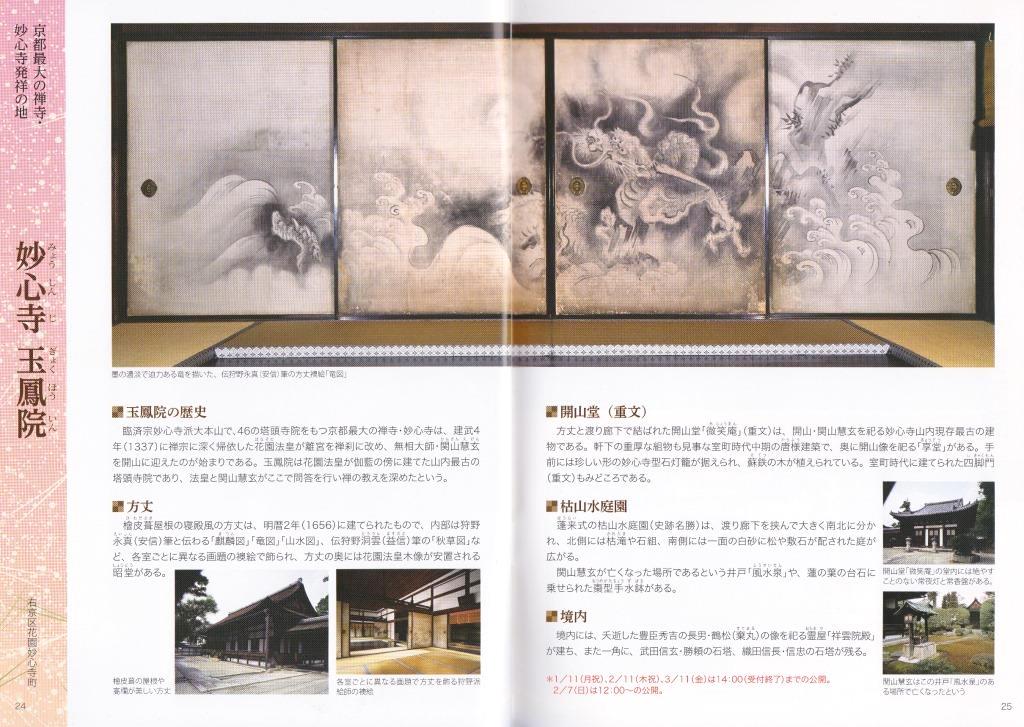 京都最大の禅寺・
妙心寺発祥の地
妙心寺 玉鳳院
みょう しん じ ぎょく ほう いん
右京区花園妙心寺町
墨の濃淡で迫力ある竜を描いた、伝狩野永真(安信)筆の方丈襖絵「竜図」
玉鳳院の歴史
臨済宗妙心寺派大本山で、46の塔頭寺院をもつ京都最大の禅寺・妙心寺は、建武4
年(1337)に禅宗に深く帰依した花園法皇が離宮を禅刹に改め、無相大師・関山慧玄
を開山に迎えたのが始まりである。玉鳳院は花園法皇が伽藍の傍に建てた山内最古の
塔頭寺院であり、法皇と関山慧玄がここで問答を行い禅の教えを深めたという。
方丈
檜皮葺屋根の寝殿風の方丈は、明暦2年(1656)に建てられたもので、内部は狩野
永真(安信)筆と伝わる「麒麟図」「竜図」「山水図」、伝狩野洞雲(益信)筆の「秋草図」な
ど、各室ごとに異なる画題の襖絵で飾られ、方丈の奥には花園法皇木像が安置される
昭堂がある。
檜皮葺の屋根や
高欄が美しい方丈
各室ごとに異なる画題で方丈を飾る狩野派
絵師の襖絵
24
開山堂(重文)
方丈と渡り廊下で結ばれた開山堂「微笑庵」(重文)は、開山・関山慧玄を祀る妙心寺山内現存最古の建
物である。軒下の重厚な組物も見事な室町時代中期の唐様建築で、奥に開山像を祀る「享堂」がある。手
前には珍しい形の妙心寺型石灯籠が据えられ、蘇鉄の木が植えられている。室町時代に建てられた四脚門
(重文)もみどころである。
枯山水庭園
蓬来式の枯山水庭園(史跡名勝)は、渡り廊下を挟んで大きく南北に分か
れ、北側には枯滝や石組、南側には一面の白砂に松や敷石が配された庭が
広がる。
関山慧玄が亡くなった場所であるという井戸「風水泉」や、蓮の葉の台石に
乗せられた棗型手水鉢がある。
境内
境内には、夭逝した豊臣秀吉の長男・鶴松(棄丸)の像を祀る霊屋「祥雲院殿」
が建ち、また一角に、武田信玄・勝頼の石塔、織田信長・信忠の石塔が残る。
＊1/11(月祝)、2/11(木祝)、3/11(金)は14:00(受付終了)までの公開。
2/7(日)は12:00〜の公開。
開山堂「微笑庵」の堂内には絶やす
ことのない常夜灯と常香盤がある。
関山慧玄はこの井戸「風水泉」のあ
る場所で亡くなったという
25